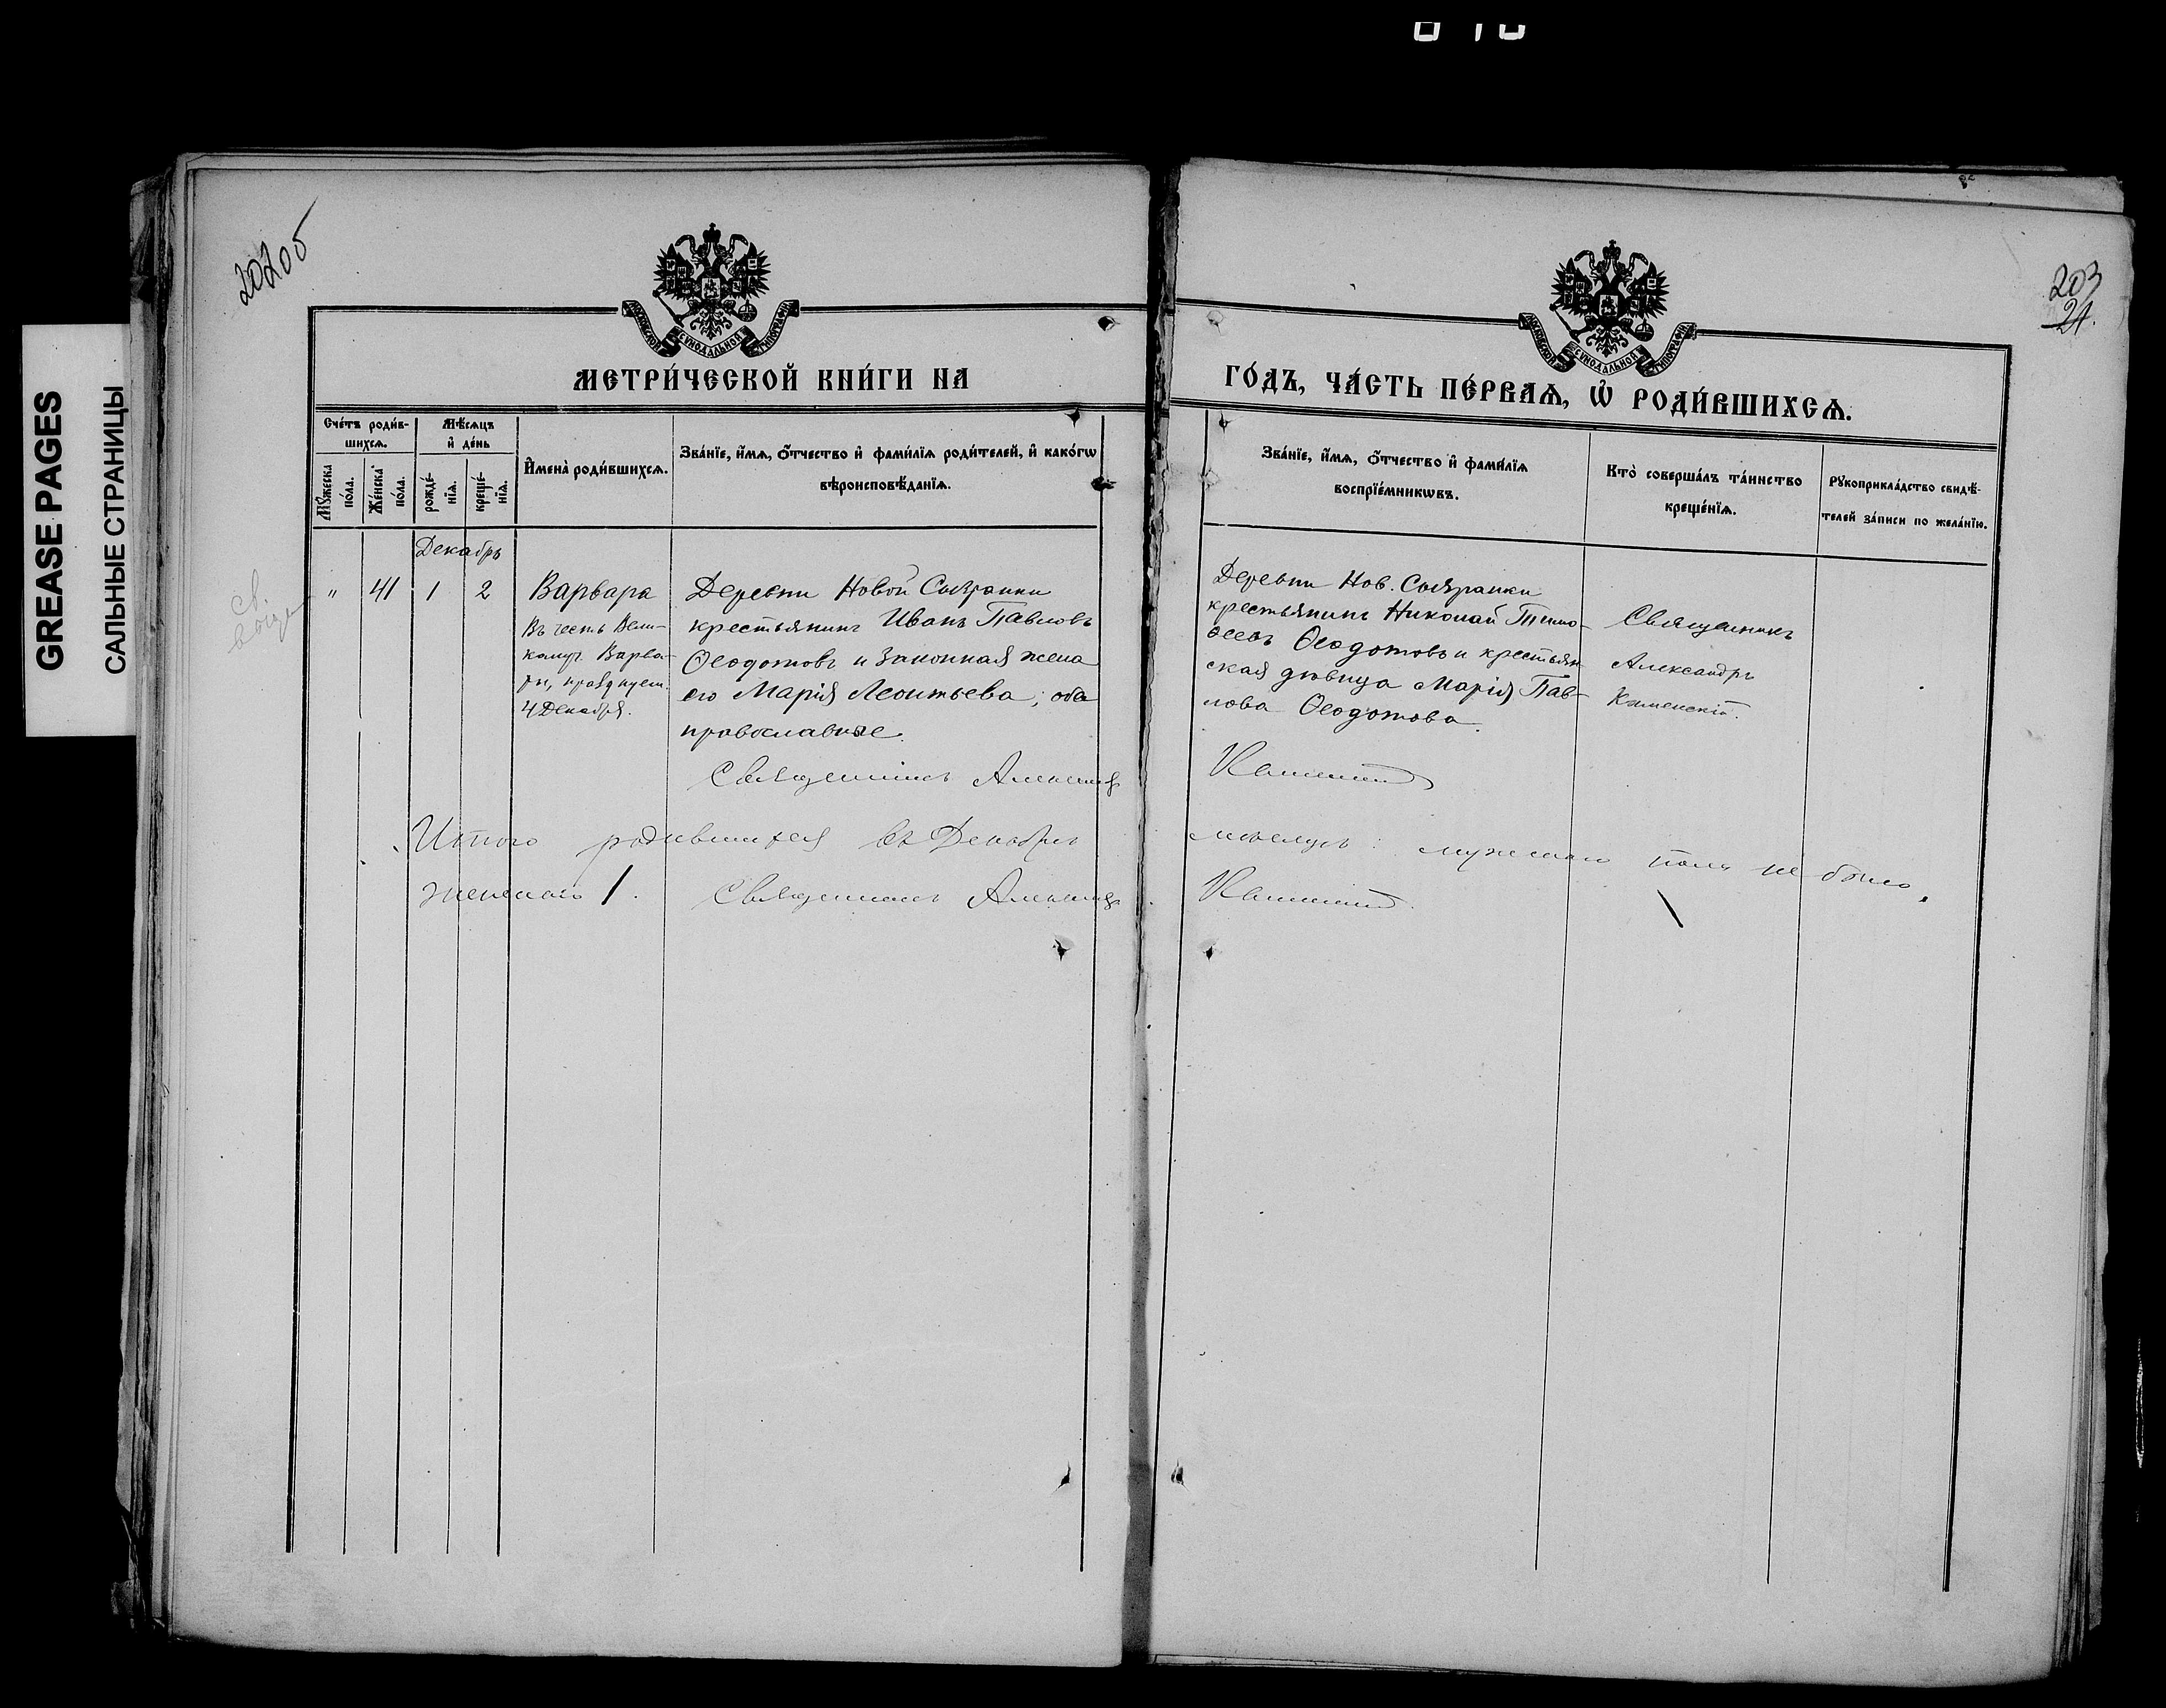 GREASE PAGES
САЛЬНЫЕ СТРАНИЦЫ
202об
203
21.
МОСКОВСКОЙ СѴНОДАЛЬНОЙ ТИПОГРАФІИ
МЕТРИ́ЧЕСКОЙ КНИ́ГИ НА
Сче́тъ роди́в-
шихсѧ.
Мꙋ́жеска
по́ла.
Же́нска
по́ла.
Мѣ́сѧцъ
и҆ де́нь
рожде́-
нїѧ.
креще́-
нїѧ.
И҆мена̀ роди́вшихсѧ.
Зва́нїе, и҆́мѧ, ѻ҆́тчество и҆ фами́лїѧ роди́телей, и҆ како́гѡ
вѣроисповѣ́данїѧ.
Декабрь
" 41 1 2
Варвара
Въ честь Вели-
комуч. Варва-
ры, празднуем.
4 Декабря.
Деревни Новой Сызранки
крестьянинъ Иванъ Павловъ
Ѳеодотовъ и законная жена
его Марія Леонтьева; оба
православные.
Священникъ Александръ
Итого родившихся въ Декабрѣ
женскаго 1. Священникъ Александръ
МОСКОВСКОЙ СѴНОДАЛЬНОЙ ТИПОГРАФІИ
ГО́ДЪ, ЧА́СТЬ ПЕ́РВАѦ, Ѡ҆ РОДИ́ВШИХСѦ.
Зва́нїе, и҆́мѧ, ѻ҆́тчество и҆ фами́лїѧ
воспрїе́мникѡвъ.
Кто̀ соверша́лъ та́инство
креще́нїѧ.
Рꙋкоприкла́дство свидѣ́-
телей за́писи по жела́нїю.
Деревни Нов. Сызранки
крестьянинъ Николай Тимо-
ѳеевъ Ѳеодотовъ и крестьян-
ская дѣвица Марія Пав-
лова Ѳеодотова.
Священникъ
Александръ
Каменскій.
Каменскій
мѣсяцѣ: мужескаго пола не было,
Каменскій